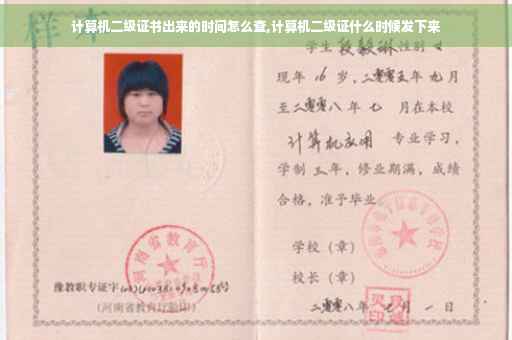 计算机二级证书出来的时间怎么查,计算机二级证什么时候发下来
样本
学生段毅琳性别女
现年16岁,二零零五年九月
至二零零八年七月在本校
计算机应用 专业学习,
学制三年,修业期满,成绩
合格,准予毕业
学校(章)
校长(章)
二零零八年七月一日
河南省教育厅
豫教职专证字
(河南省教育厅验印)